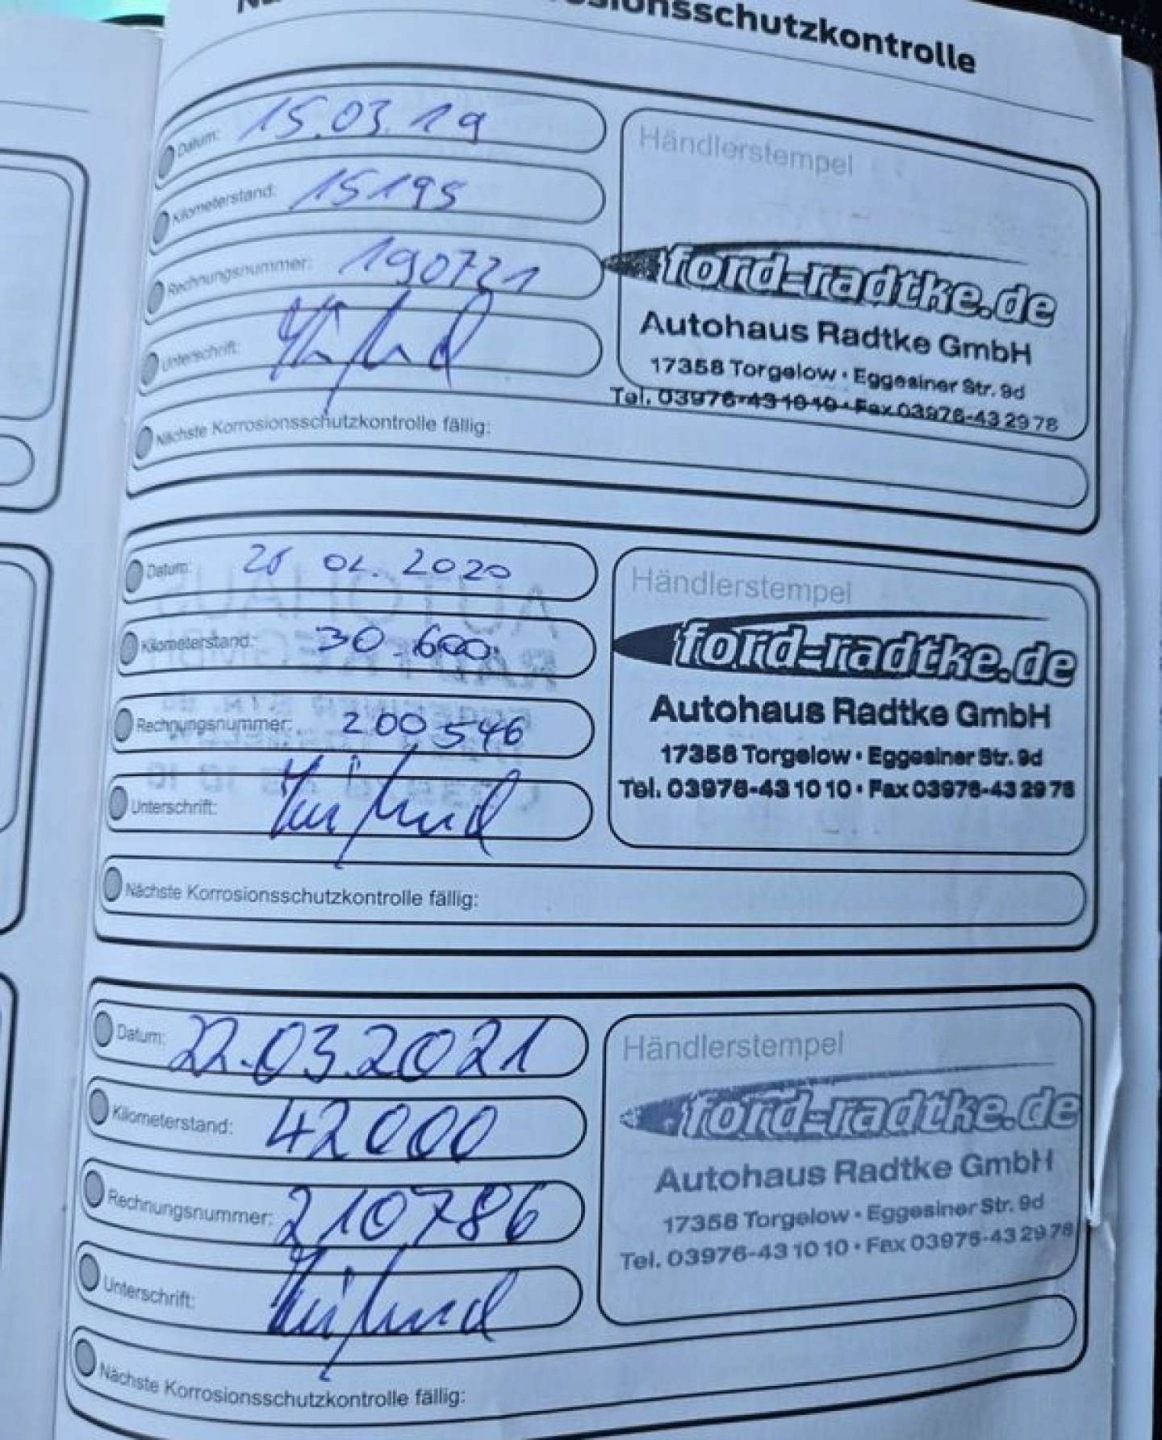 onsschutzkontrolle
Datum: 15.03.19
Kilometerstand: 15195
Rechnungsnummer: 190721
Unterschrift:
Nächste Korrosionsschutzkontrolle fällig:
Händlerstempel
ford-radtke.de
Autohaus Radtke GmbH
17358 Torgelow • Eggesiner Str. 9d
Tel. 03976-43 10 10 • Fax 03976-43 29 78
Datum: 02. 2020
Kilometerstand: 30.600
Rechnungsnummer: 200546
Unterschrift:
Nächste Korrosionsschutzkontrolle fällig:
Händlerstempel
ford-radtke.de
Autohaus Radtke GmbH
17358 Torgelow • Eggesiner Str. 9d
Tel. 03976-43 10 10 • Fax 03976-43 29 78
Datum: 22.03.2021
Kilometerstand: 42000
Rechnungsnummer: 210786
Unterschrift:
Nächste Korrosionsschutzkontrolle fällig:
Händlerstempel
ford-radtke.de
Autohaus Radtke GmbH
17358 Torgelow • Eggesiner Str. 9d
Tel. 03976-43 10 10 • Fax 03976-43 29 78